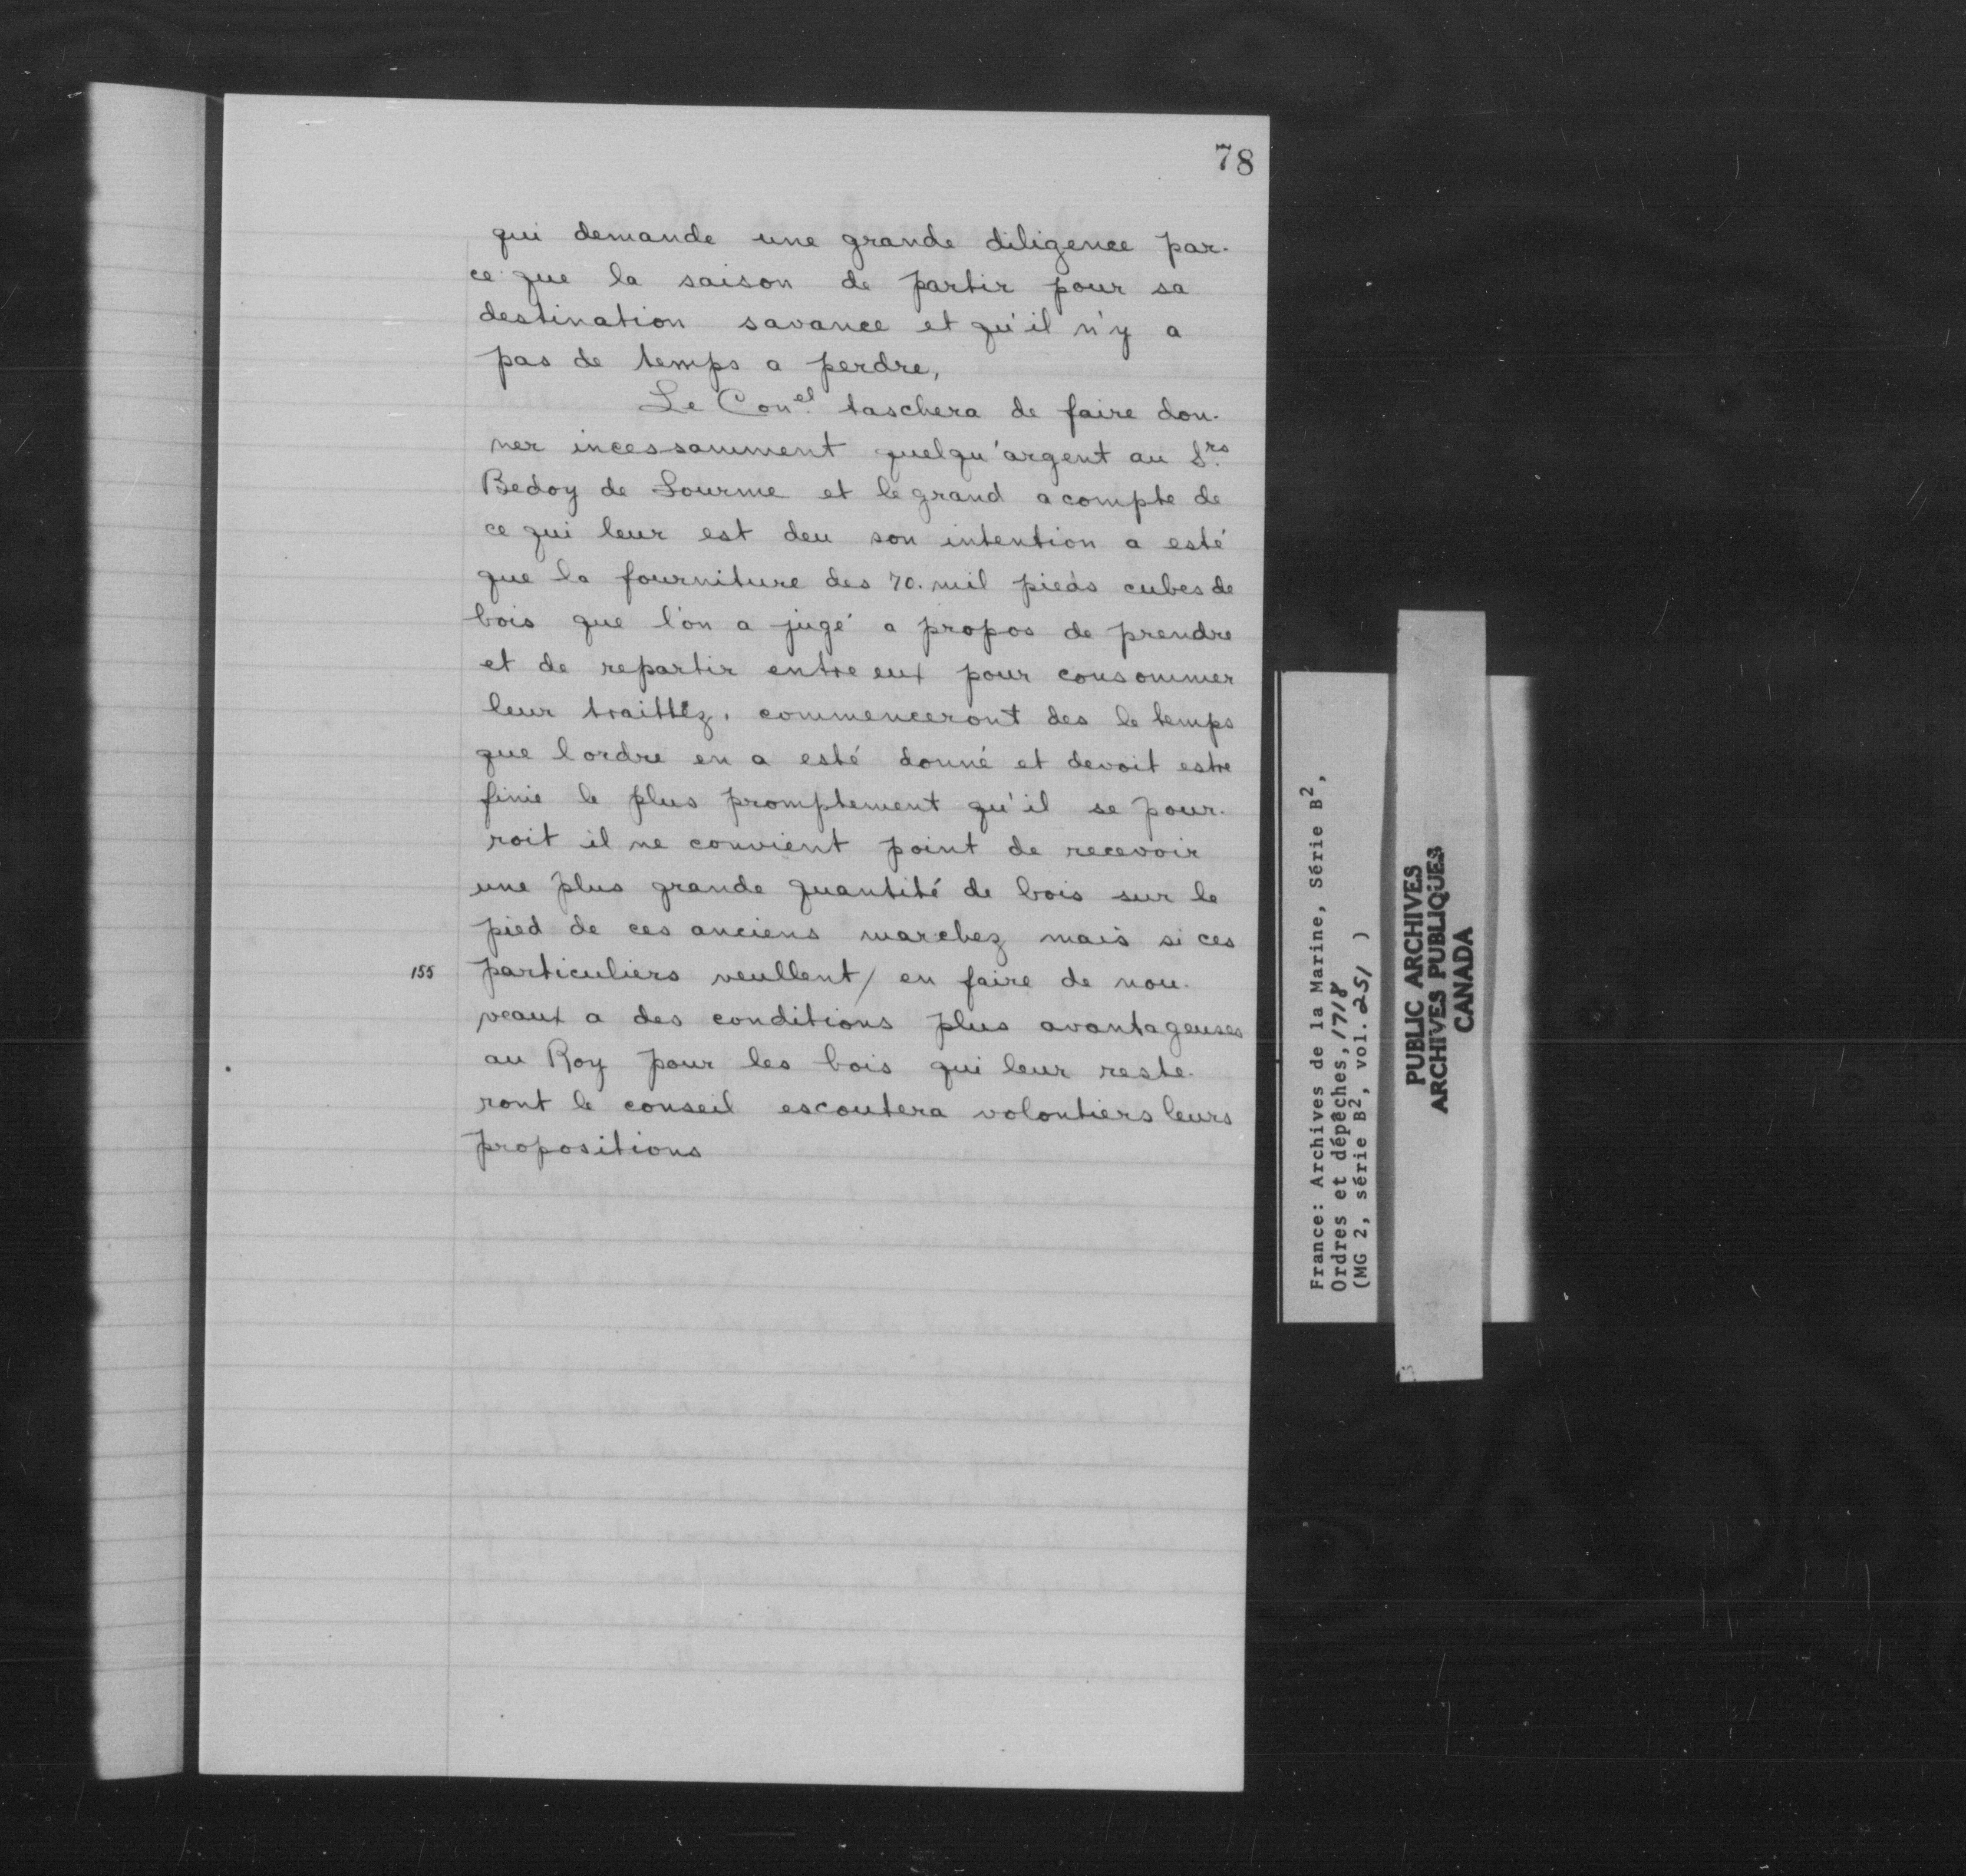 78
qui demande une grande diligence par-
ce que la saison de partir pour sa
destination savance et qu'il n'y a
pas de temps a perdre,
Le Con.el taschera de faire don-
ner incessamment quelqu'argent au S.rs
Bedoy de Lourme et le grand a compte de
ce qui leur est deu son intention a esté
que la fourniture des 70. mil pieds cubes de
bois que l'on a jugé a propos de prendre
et de repartir entre eux pour consommer
leur traittez, commenceront des le temps
que lordre en a esté donné et devoit estre
finie le plus promptement qu'il se pour-
roit il ne convient point de recevoir
une plus grande quantité de bois sur le
pied de ces anciens marchez mais si ces
155 particuliers veullent / en faire de nou-
veaux a des conditions plus avantageuses
au Roy pour les bois qui leur reste-
ront le conseil escoutera volontiers leurs
propositions
France: Archives de la Marine, Série B2,
Ordres et dépêches, 1718
(MG 2, série B2, vol. 251 )
PUBLIC ARCHIVES
ARCHIVES PUBLIQUES
CANADA